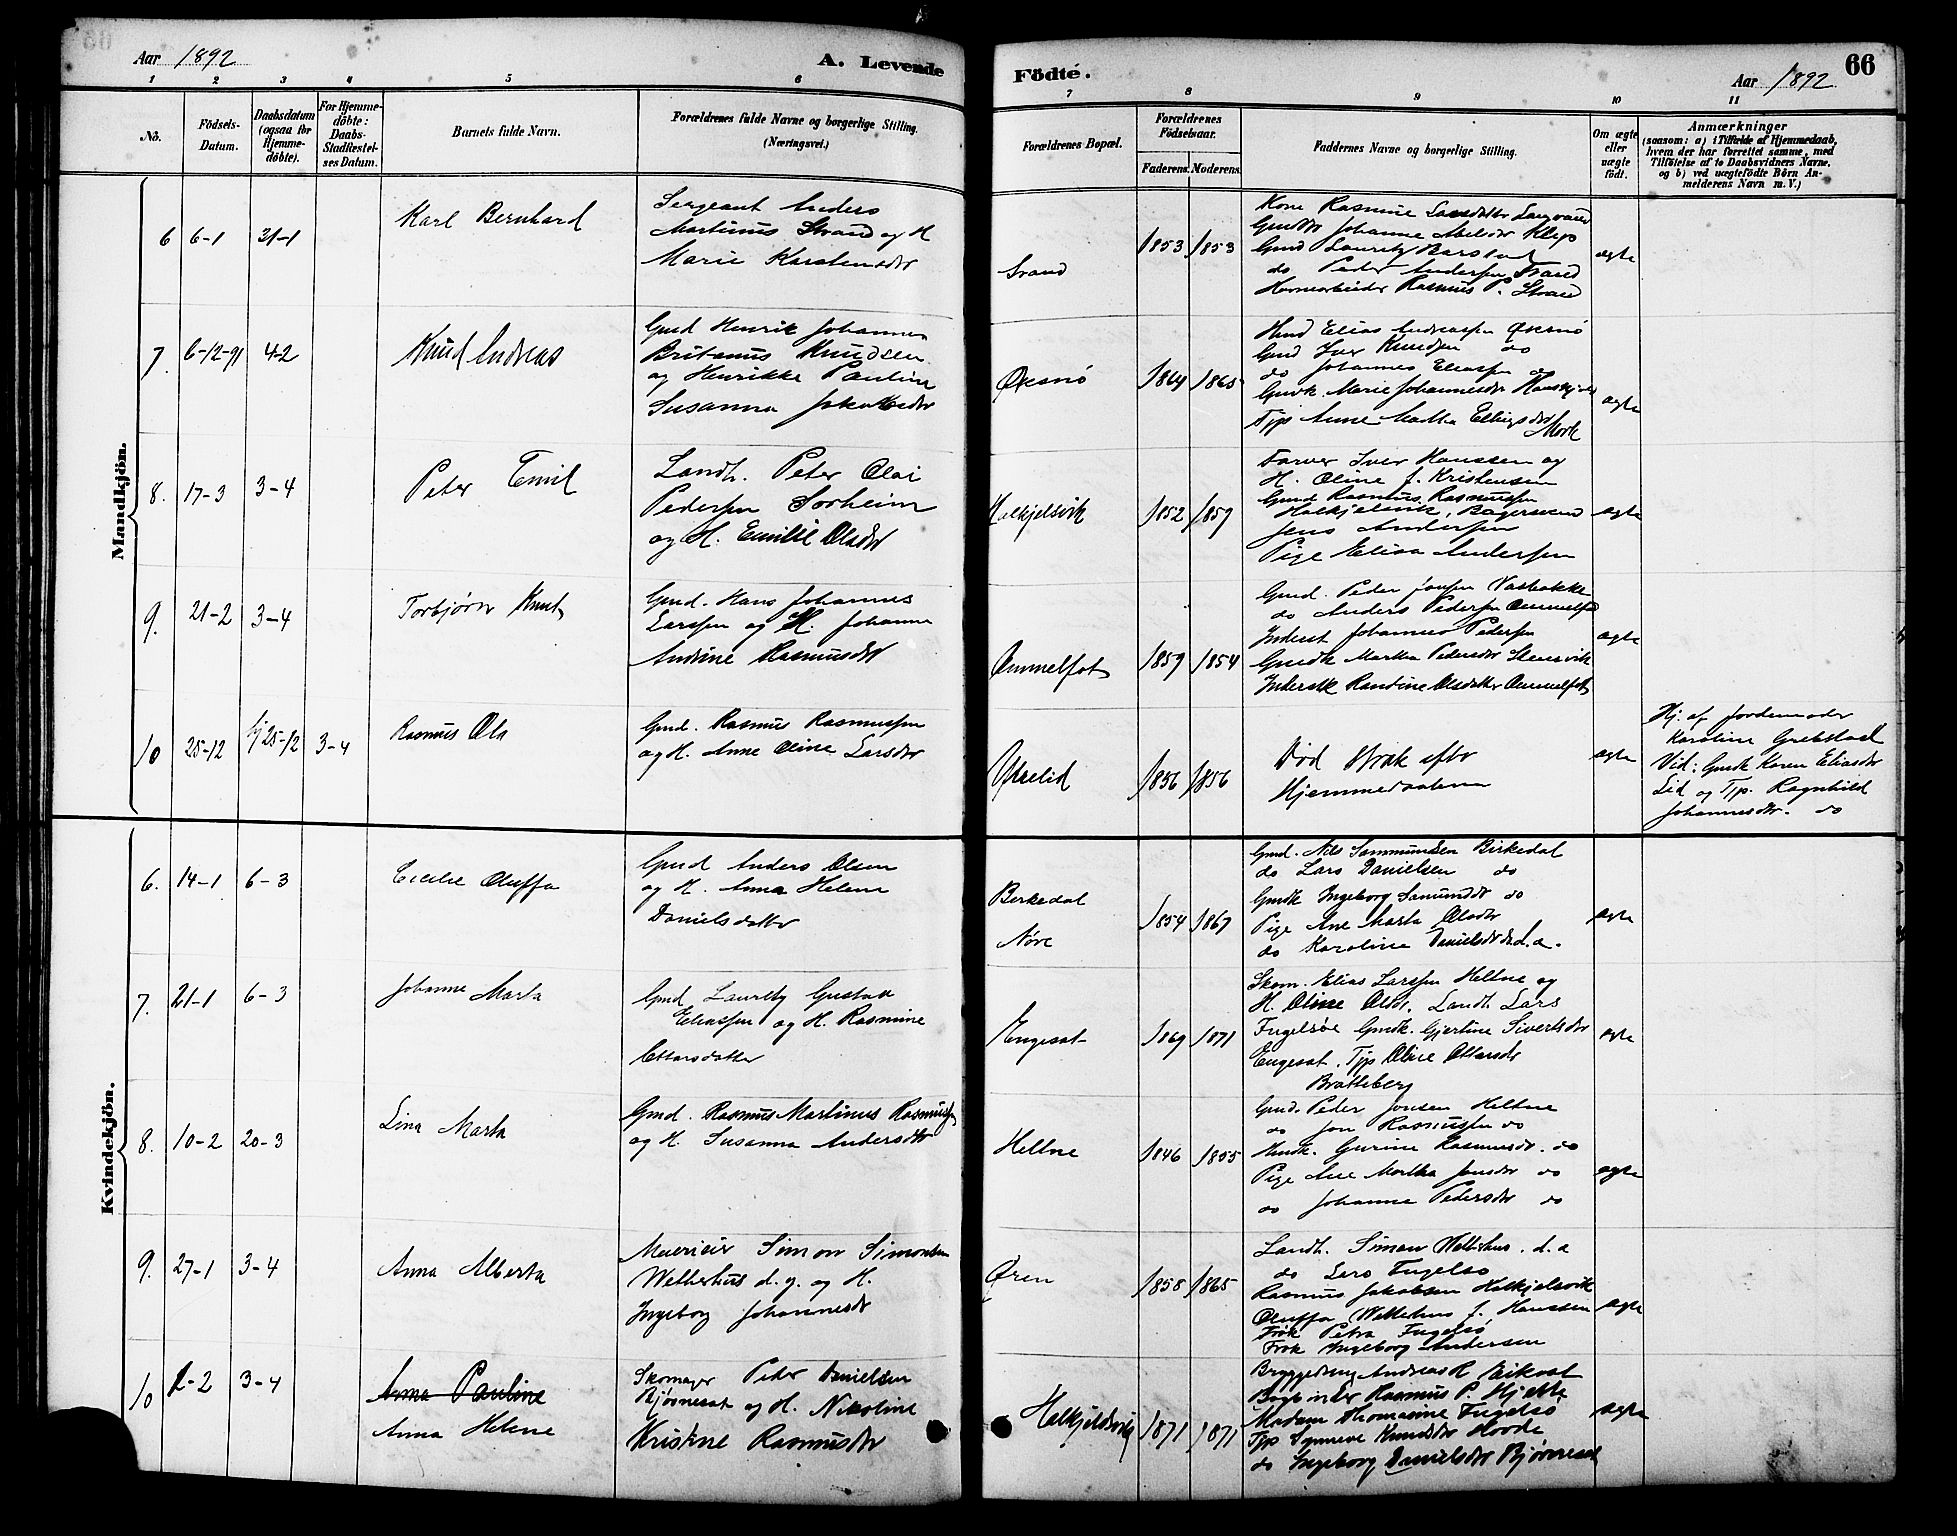 Aar 1892
A. Levende
Födte.
Aar 1892
66
1 2 3 4 5 6 7 8 9 10 11
No.
Födsels-Datum.
Daabsdatum (ogsaa for Hjemme-döbte).
For Hjemme-döbte: Daabs-Stadfestel-ses Datum.
Barnets fulde Navn.
Forældrenes fulde Navne og borgerlige Stilling. (Næringsvei.)
Forældrenes Bopæl.
Forældrenes Födselsaar.
Faderens. Moderens.
Faddernes Navne og borgerlige Stilling.
Om ægte eller uægte födt.
Anmærkninger
(saasom: a) i Tilfælde af Hjemmedaab, hvem der har forrettet samme, med Tilföielse af to Daabsvidners Navne, og b) ved uægtefödte Börn An-melderens Navn m. V.)
Mandkjön.
6 6-1 31-1
Karl Bernhard
Sergeant Anders
Martinus Strand og H
Marie Karstensdtr
Strand
1853 1853
Kone Rasmine Larsdatter
Johanne Klep
Gmd Lauritz
do Peder Andersen Strand
Rasmus P. Strand
ægte
7. 6-12-91 4-2
Knud Andreas
Gmd Henrik Johannes
Britanus Knudsen
og Henrikke Pauline
Susanna Jakobsdtr
Øksnö
1864 1865
Elias Andreassen Øksnö
Gmd Iver Knudsen do
do Johannes Eliassen do
Gmdk. Marie Johannesdtr
Tjp Anne Martha Ellingsdtr
Mork
ægte
8. 17-3 3-4
Peter Emil
Landh. Peter Olai
Pedersen Sorheim
og H. Emilie Olsdtr
Halkjelsvik
1852 1859
Farver Iver Hanssen og
H. Oline f. Kristensen
Gmd Rasmus Rasmussen
Halkjelsvik, Bagersvend
Jens Andersen
Pige Elisa Andersen
ægte
9. 21-2 3-4
Torbjørn Knut
Gmd. Hans Johannes
Larssen og H. Johanne
Andrine Rasmusdtr
Aammelfot
1859 1854
Gmd. Peder Jonsen Nasbakke
do Anders Pedersen Aammelfot
Inderst Johannes Pedersen
Gmdk Martha Pedersdtr Steinsvik
Inderstk Randine Olsdatter Aammelfot
ægte
10 25-12 hj 25-12 3-4
Rasmus Ola
Gmd. Rasmus Rasmussen
og H. Anne Oline Larsdtr
Yttrelid
1856 1856
Død strak efter
Hjemmedaaben
ægte
Hj. af Jordemoder
Karoline Grebstad
Vid: Gmdk Karen Eliasdtr
Lid og Tjp. Ragnhild
Johannesdtr. do
Kvindekjön.
6. 14-1 6-3
Cecilie Oluffa
Gmd Anders Olsen
og H. Anna Helene
Danielsdatter
Birkedal
Nøre
1854 1867
Gmd. Nils Sammundsen Birkedal
do Lars Danielsen do
Gmdk Ingeborg Samundsdtr do
Pige Ane Marta Olsdtr
do Karoline Danielsdtr d.a.
ægte
7. 21-1 6-3
Johanne Marta
Gmd Lauritz Gustav
Eliassen og H. Rasmine
Ottarsdatter
Engeset
1869 1871
Skom. Elias Larssen Heltne og
H. Oline Olsdtr. Landh. Lars
Fugelsöe Gmdk. Gjertine Sivertsdtr
Engeset. Tjp Oline Ottarsdtr
Bratteberg
ægte
8. 10-2 20-3
Lina Marta
Gmd. Rasmus Martinus Rasmussen
og H. Susanna Andersdtr
Heltne
1846 1855
Gmd. Peder Jonsen Heltne
do Jon Rasmussen do
Gmdk. Gurine Rasmusdtr. do
Pige Ane Martha Jonsdtr do
do Johanne Pedersdtr do
ægte
9. 27-1 3-4
Anna Alberta
Meierier Simon Simonsen
Welterhus d.y. og H.
Ingeborg Johannesdtr
Øren
1858 1865
Landh. Simon Welterhus. d.a
do Lars Fugelsö
Rasmus Jakobsen Halkjelsvik
Oluffa Welterhus f. Hanssen
Frøk Petra Fugelsö
Frøk Ingeborg Andersen
ægte
10 2-2 3-4
Anna Pauline
Anna Helene
Skomager Peter Danielsen
Bjørneset og H. Nikoline
Kristine Rasmusdtr
Halkjelsvig
1871 1871
Andreas R Eikset
Rasmus P. Hjelle
Madam Thomasine Fugelsö
Tjp Synneve Knudsdtr Hovde
do Ingeborg Danielsdtr Bjørneset
ægte